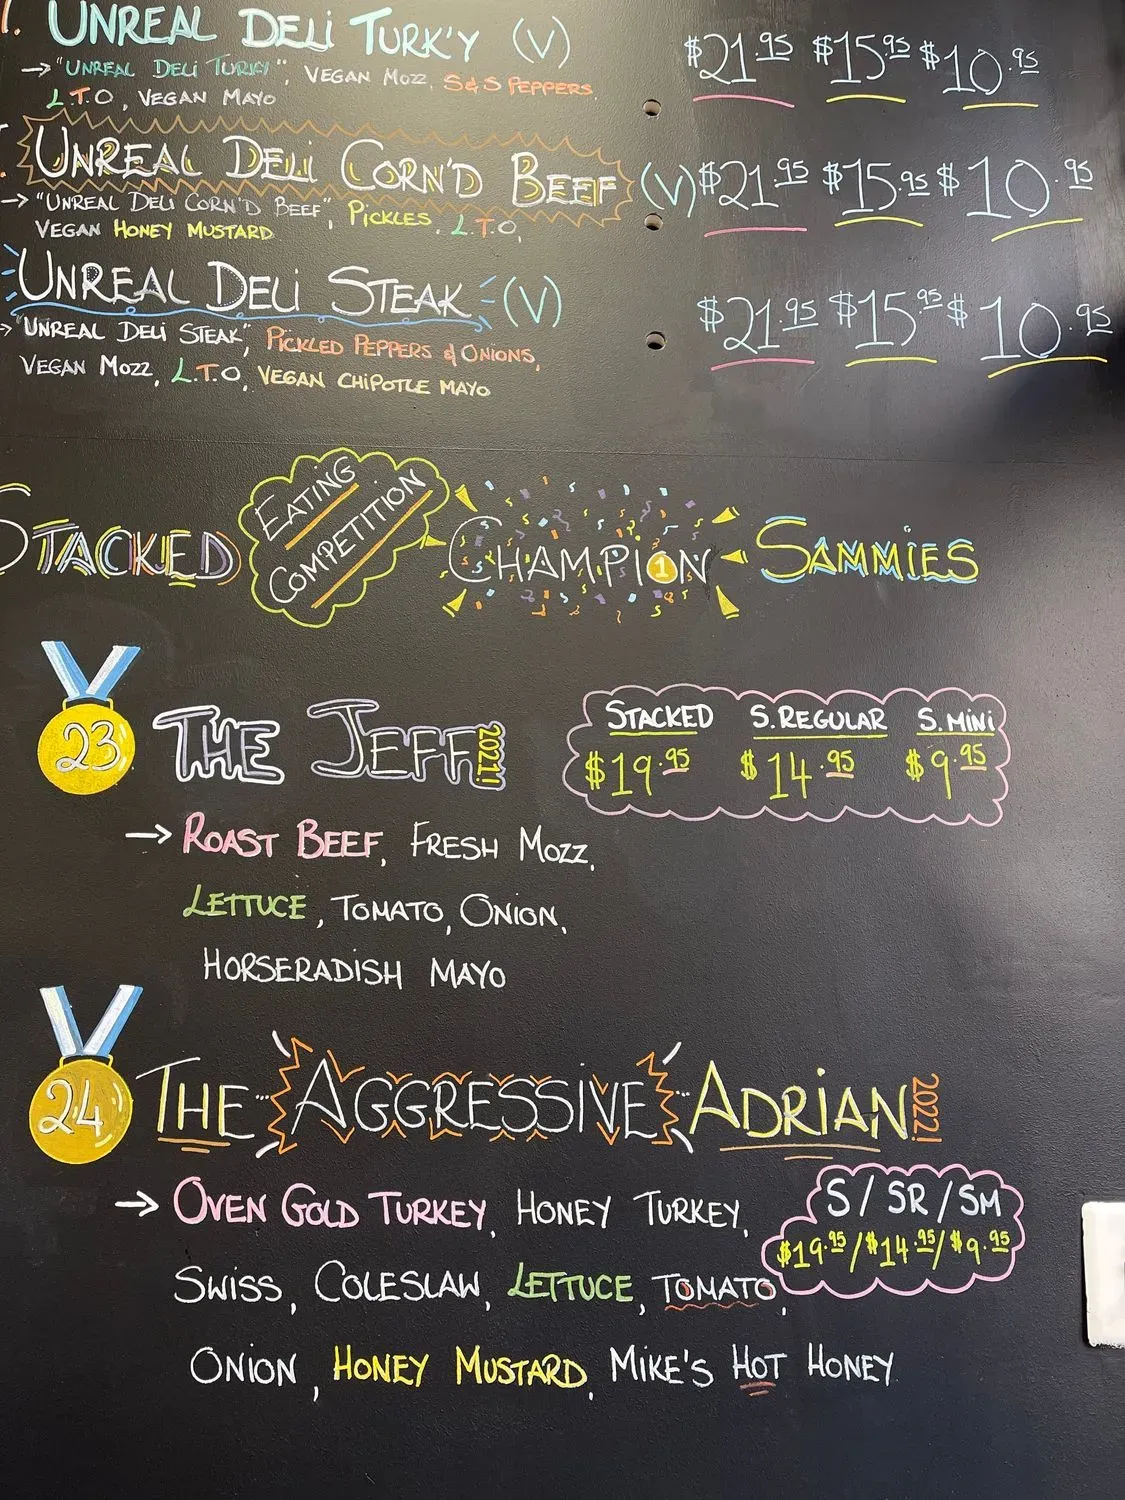 1. UNREAL DELI TURK'Y (V) $21.95 $15.95 $10.95
→ "UNREAL DELI TURKY", VEGAN MOZZ, S&S PEPPERS,
L.T.O, VEGAN MAYO
UNREAL DELI CORN'D BEEF (V) $21.95 $15.95 $10.95
→ "UNREAL DELI CORN'D BEEF", PICKLES, L.T.O,
VEGAN HONEY MUSTARD
UNREAL DELI STEAK (V) $21.95 $15.95 $10.95
→ "UNREAL DELI STEAK", PICKLED PEPPERS & ONIONS,
VEGAN MOZZ, L.T.O, VEGAN CHIPOTLE MAYO
STACKED EATING COMPETITION CHAMPION 1 SAMMIES
23 THE JEFF 2021!
STACKED S.REGULAR S.MINI
$19.95 $14.95 $9.95
→ ROAST BEEF, FRESH MOZZ,
LETTUCE, TOMATO, ONION,
HORSERADISH MAYO
24 THE AGGRESSIVE ADRIAN 2022!
→ OVEN GOLD TURKEY, HONEY TURKEY,
S/SR/SM
$19.95/$14.95/$9.95
SWISS, COLESLAW, LETTUCE, TOMATO,
ONION, HONEY MUSTARD, MIKE'S HOT HONEY